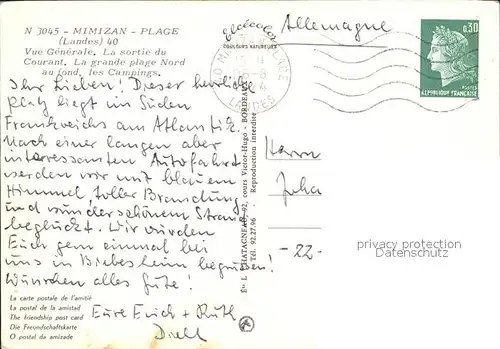 N 3045 - MIMIZAN - PLAGE
(Landes) 40
Vue Générale. La sortie du
Courant. La grande plage Nord
au fond, les Campings.
elcécolor
COULEURS NATURELLES
Allemagne
0,30
POSTES
REPUBLIQUE FRANÇAISE
LANDES
Ihr Lieben! Dieser herrliche
Platz liegt im Süden
Frankreichs am Atlantik.
Nach einer langen aber
interessanten Autofahrt
werden wir mit blauem
Himmel, toller Brandung
und wunderschönem Strand
beglückt. Wir würden
Euch gern einmal bei
uns in Biebesheim begrüßen!
Wünschen alles Gute!
Eure Erich + Ruth
Diell
Herrn
Juha
-22-
Reproduction interdite
CHATAGNEAU - 92, cours Victor-Hugo - BORDEAUX
Tél. 92.27.96
privacy protection
Datenschutz
La carte postale de l'amitié
La postal de la amistad
The friendship post card
Die Freundschaftskarte
O postal da amizade